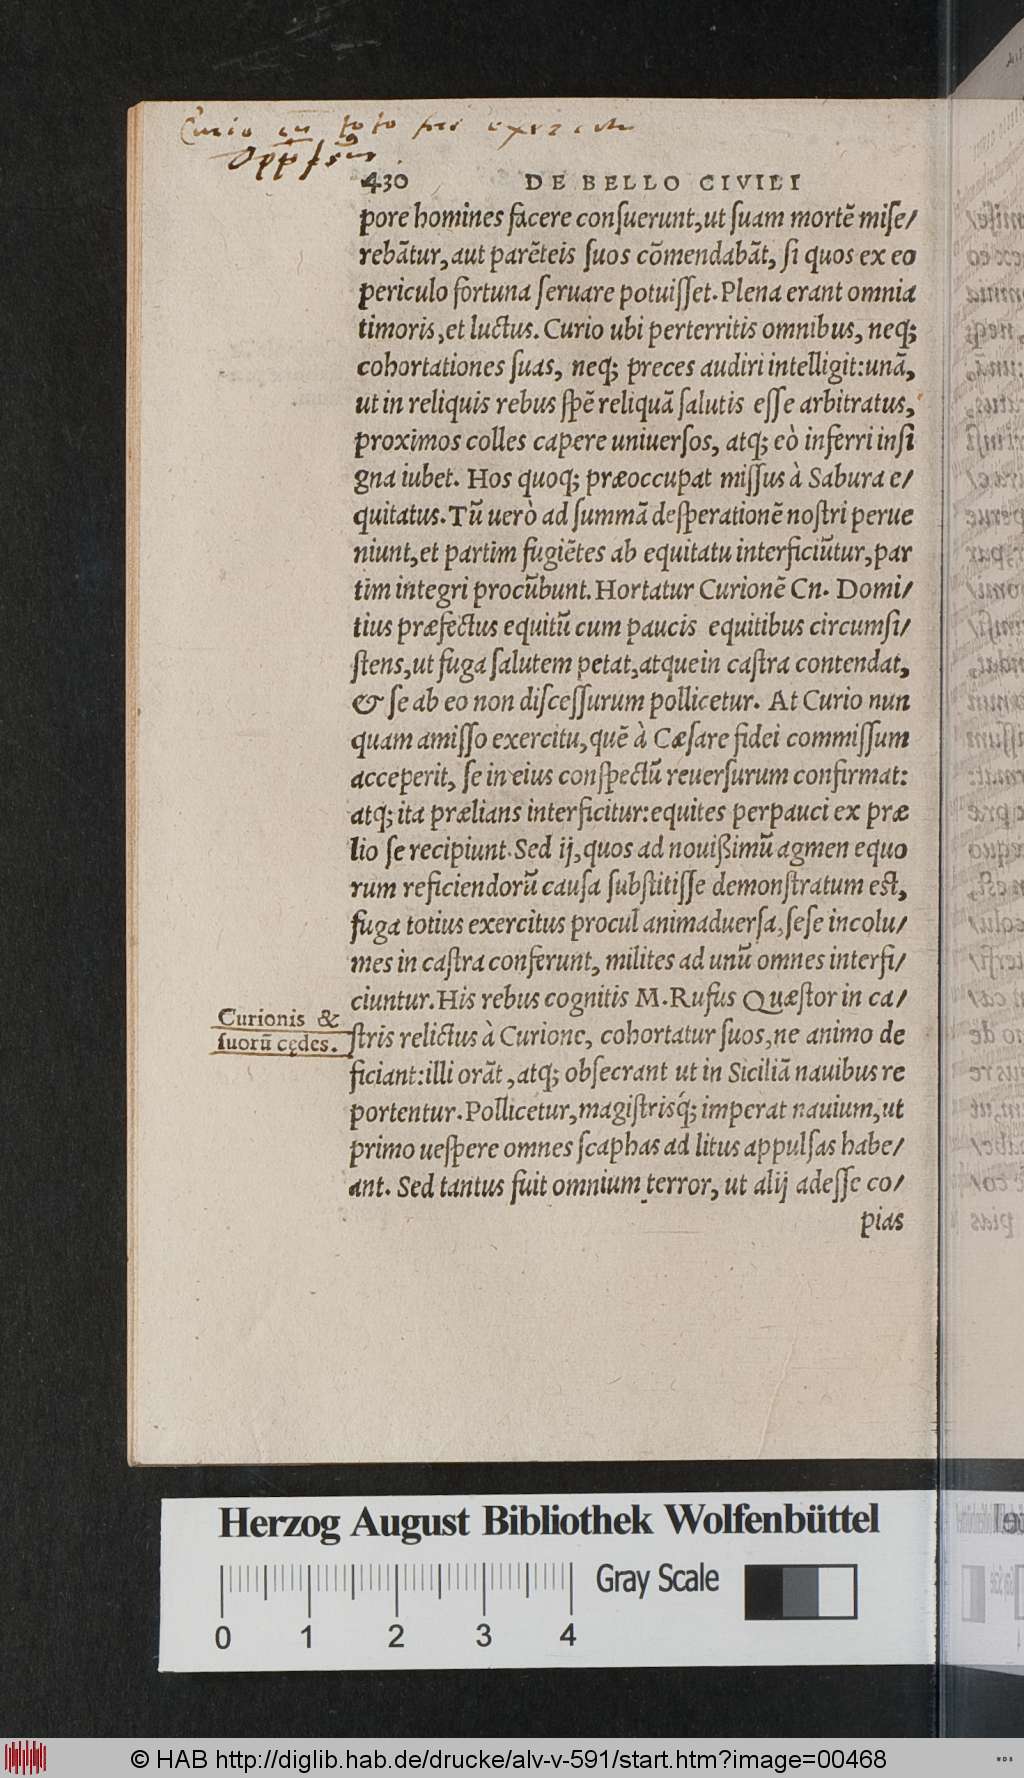 Curio cu toto
430 DE BELLO CIVILI
pore homines facere conſuerunt,ut ſuam mortē miſe/
rebātur,aut parēteis ſuos cōmendabāt, ſi quos ex eo
periculo fortuna ſeruare potuiſſet. Plena erant omnia
timoris,et luctus. Curio ubi perterritis omnibus, neq;
cohortationes ſuas, neq; preces audiri intelligit:unā,
ut in reliquis rebus ſpē reliquā ſalutis eſſe arbitratus,
proximos colles capere uniuerſos, atq; eò inferri inſi
gna iubet. Hos quoq; præoccupat miſſus à Sabura e/
quitatus. Tū uerò ad ſummā deſperationē noſtri perue
niunt,et partim fugiētes ab equitatu interficiūtur,par
tim integri procūbunt. Hortatur Curionē Cn. Domi/
tius præfectus equitū cum paucis equitibus circumſi/
ſtens,ut fuga ſalutem petat,atque in caſtra contendat,
& ſe ab eo non diſceſſurum pollicetur. At Curio nun
quam amiſſo exercitu,quē à Cæſare fidei commiſſum
acceperit, ſe in eius conſpectū reuerſurum confirmat:
atq; ita prælians interficitur:equites perpauci ex præ
lio ſe recipiunt. Sed ij,quos ad nouißimū agmen equo
rum reficiendorū cauſa ſubſtitiſſe demonſtratum eſt,
fuga totius exercitus procul animaduerſa,ſeſe incolu/
mes in caſtra conferunt, milites ad unū omnes interfi/
ciuntur. His rebus cognitis M. Rufus Quæſtor in ca/
Curionis &
ſuorū cędes.
ſtris relictus à Curione, cohortatur ſuos,ne animo de
ficiant:illi orāt, atq; obſecrant ut in Siciliā nauibus re
portentur. Pollicetur,magiſtrisq́; imperat nauium,ut
primo ueſpere omnes ſcaphas ad litus appulſas habe/
ant. Sed tantus fuit omnium terror, ut alij adeſſe co/
pias
Herzog August Bibliothek Wolfenbüttel
Gray Scale
0 1 2 3 4
© HAB http://diglib.hab.de/drucke/alv-v-591/start.htm?image=00468